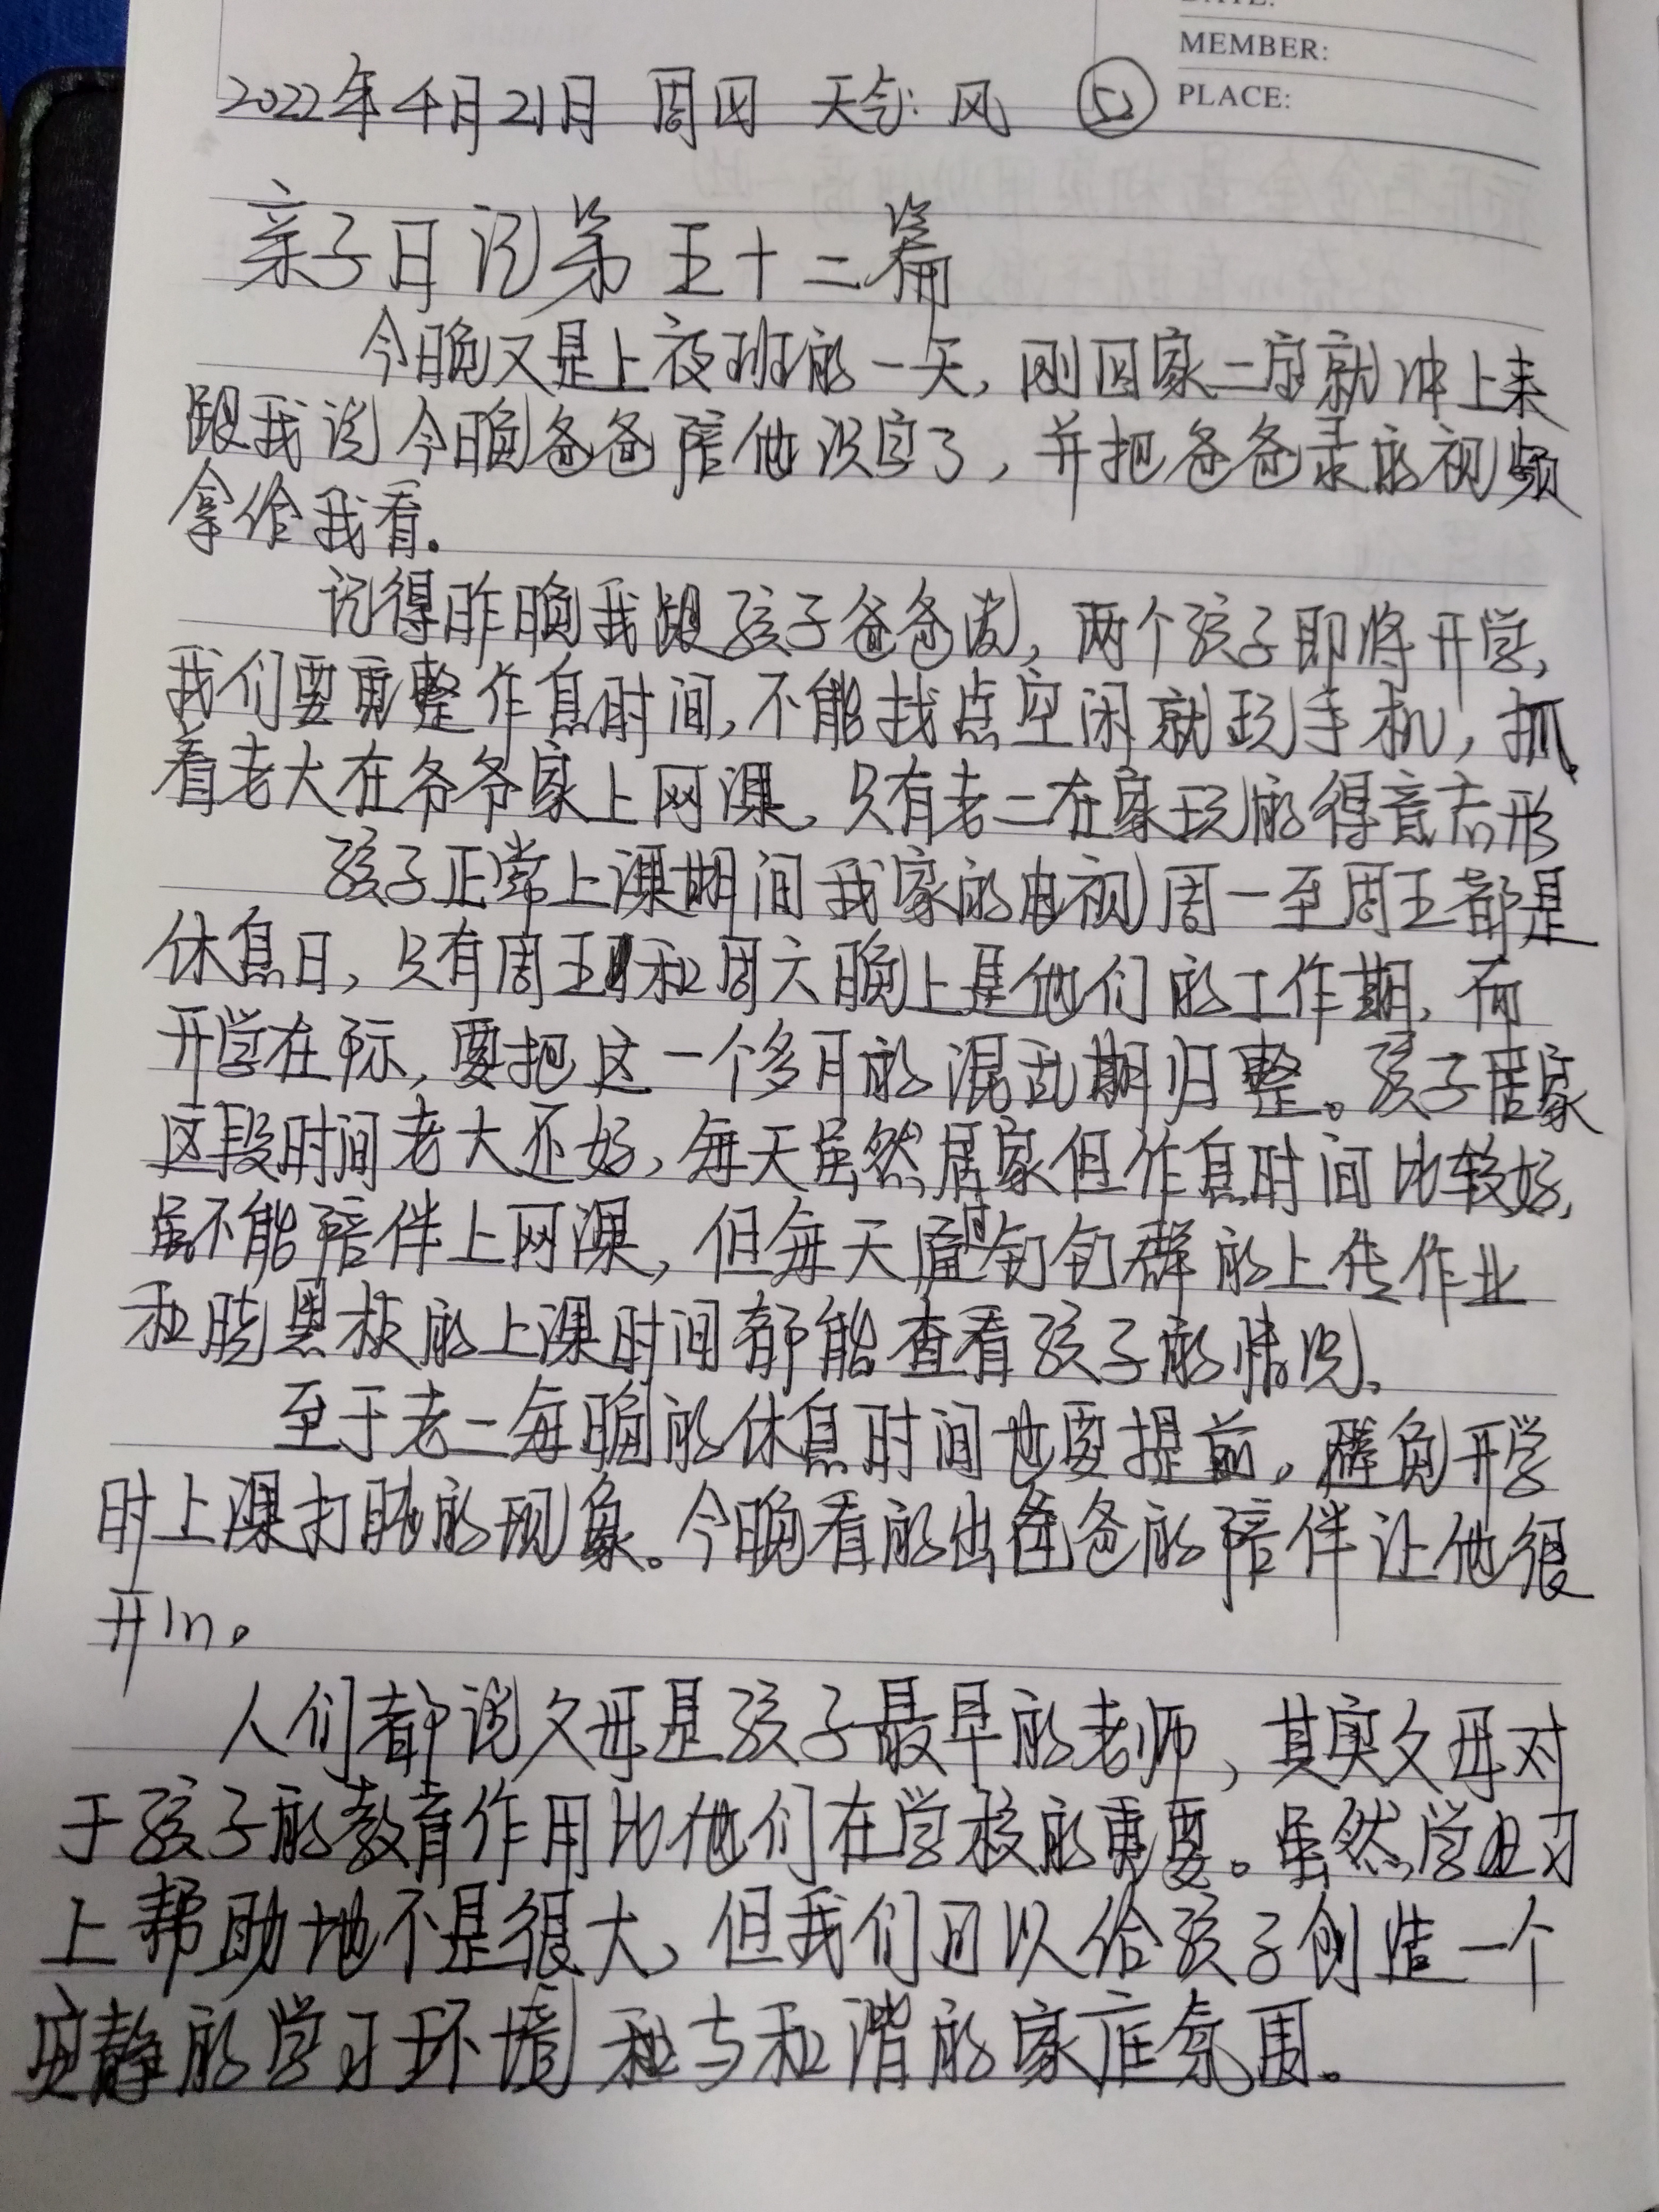 DATE:
MEMBER:
PLACE:
2022年4月21日 周四 天气:风 52
亲子日记第五十二篇
今晚又是上夜班的一天,刚回家二宝就冲上来
跟我说今晚爸爸陪他识字了,并把爸爸录的视频
拿给我看。
记得昨晚我跟孩子爸爸说,两个孩子即将开学,
我们要重整作息时间,不能找点空闲就玩手机,抓
着老大在爷爷家上网课,只有老二在家玩的得意忘形
孩子正常上课期间我家的电视周一至周五都是
休息日,只有周五和周六晚上是他们的工作期,而
开学在际,要把这一个多月的混乱期归整。孩子居家
这段时间老大还好,每天虽然居家但作息时间比较好,
虽不能陪伴上网课,但每天通过钉钉群的上传作业
和晓黑板的上课时间都能查看孩子的情况。
至于老二每晚的休息时间也要提前,避免开学
时上课打盹的现象。今晚看的出爸爸的陪伴让他很
开心。
人们都说父母是孩子最早的老师,其实父母对
于孩子的教育作用比他们在学校的重要。虽然学习
上帮助地不是很大,但我们可以给孩子创造一个
安静的学习环境和与和谐的家庭氛围。